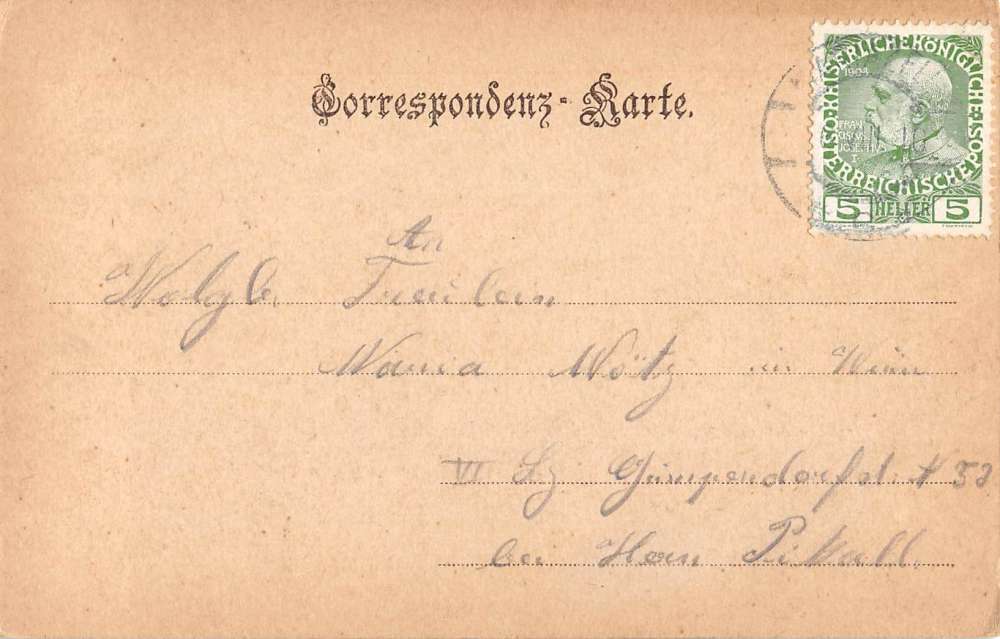 Correspondenz-Karte.
KAISERLICHE KÖNIGLICHE ÖSTERREICHISCHE POST
1908
FRAN
JOSEPHVS
I
5 HELLER 5
An
Wolgb. Freulein
Maria Wötz in Wien
VI Bz Gumpendorfst. N 53
bei Herrn Pikall